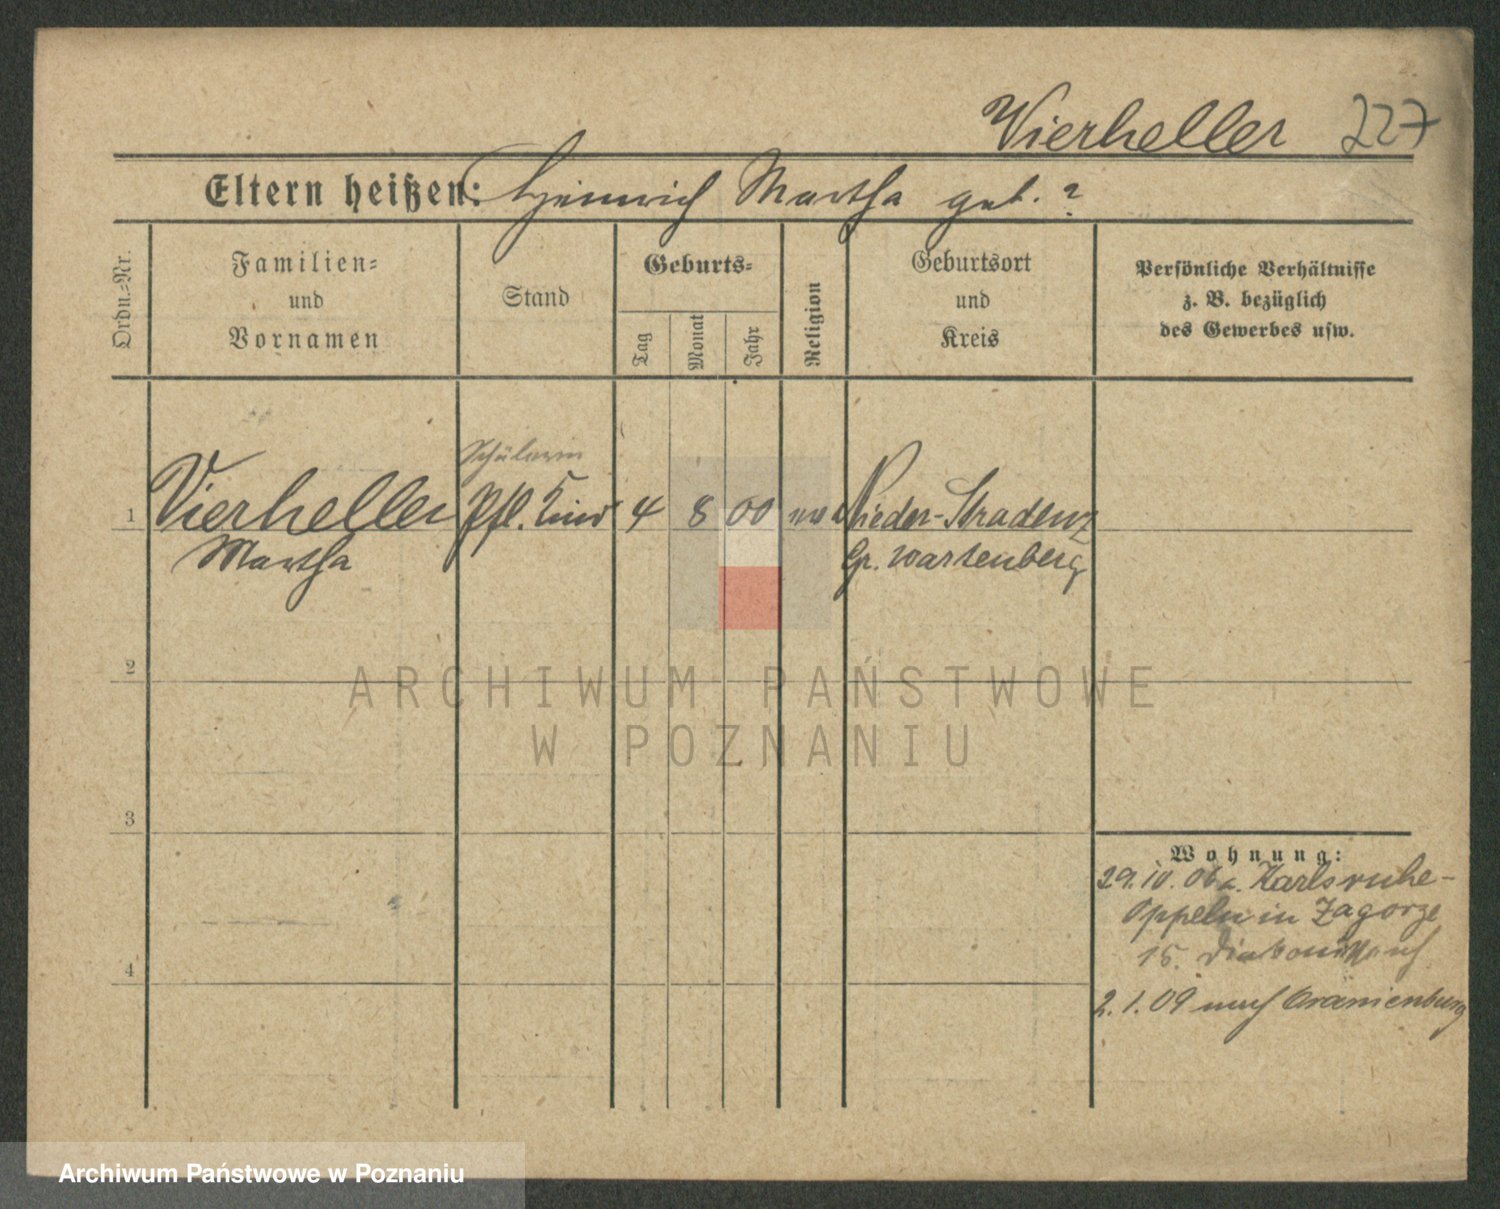 Vierheller 227
Eltern heißen: Heinrich Martha geb. ?
Ordn.-Nr.
Familien-
und
Vornamen
Stand
Geburts-
Tag
Monat
Jahr
Religion
Geburtsort
und
Kreis
Persönliche Verhältnisse
z. B. bezüglich
des Gewerbes usw.
Schülerin
1 Vierheller Pfl. Kind 4 8 00 Nieder-Stradenz
Martha Gr. Wartenberg
2
ARCHIWUM PAŃSTWOWE
W POZNANIU
3
Wohnung:
29.10.06 Karlsruhe-
Oppeln in Zagorze
15.
4
2.1.09 nach Oranienburg
Archiwum Państwowe w Poznaniu